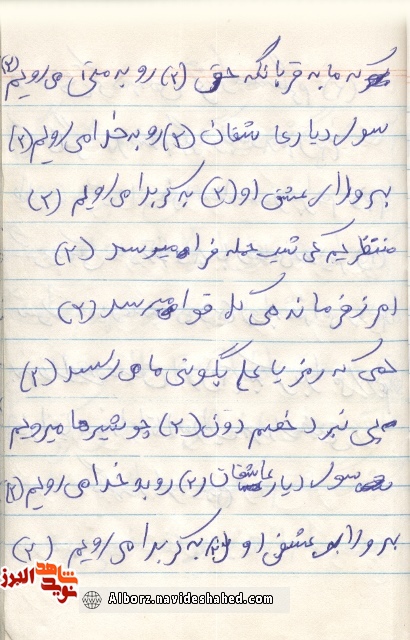 که ما به قربانگه حق (۲) رو به منی می رویم (۲)
سوی دیار عاشقان (۲) رو به خدا می رویم (۲)
بهر ولای عشق او (۲) به کربلا می رویم (۲)
منتظریم کی شب حمله فرا میرسد (۲)
امر ز فرمانده کل قوا میرسد (۲)
که رمز یا علی بگوش ما می رسد (۲)
پی نبرد خصم دون (۲) چو شیرها میرویم
سوی دیار عاشقان (۲) رو به خدا می رویم (۲)
بهر ولای عشق او (۲) به کربلا می رویم (۲)
نوید شاهد البرز
Alborz.navideshahed.com